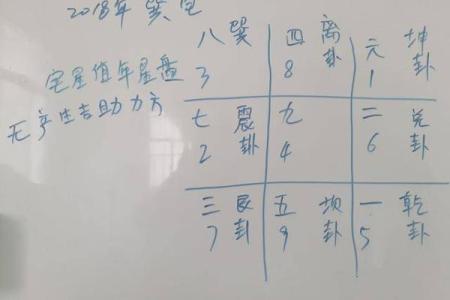 2018年 巽宅
宅星值年星盘
无产生吉助力方
八 巽
3
四 离卦
8
六 坤卦
1
七 震卦
2
九
4
二 兑卦
6
三 艮卦
7
五 坝卦
9
一 乾卦
5